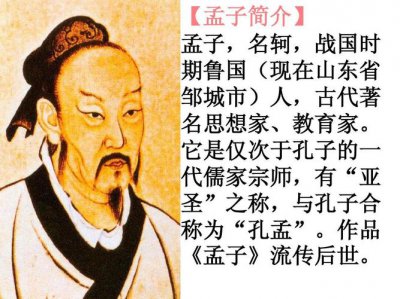 【孟子简介】
孟子，名轲，战国时
期鲁国（现在山东省
邹城市）人，古代著
名思想家、教育家。
它是仅次于孔子的一
代儒家宗师，有“亚
圣”之称，与孔子合
称为“孔孟”。作品
《孟子》流传后世。